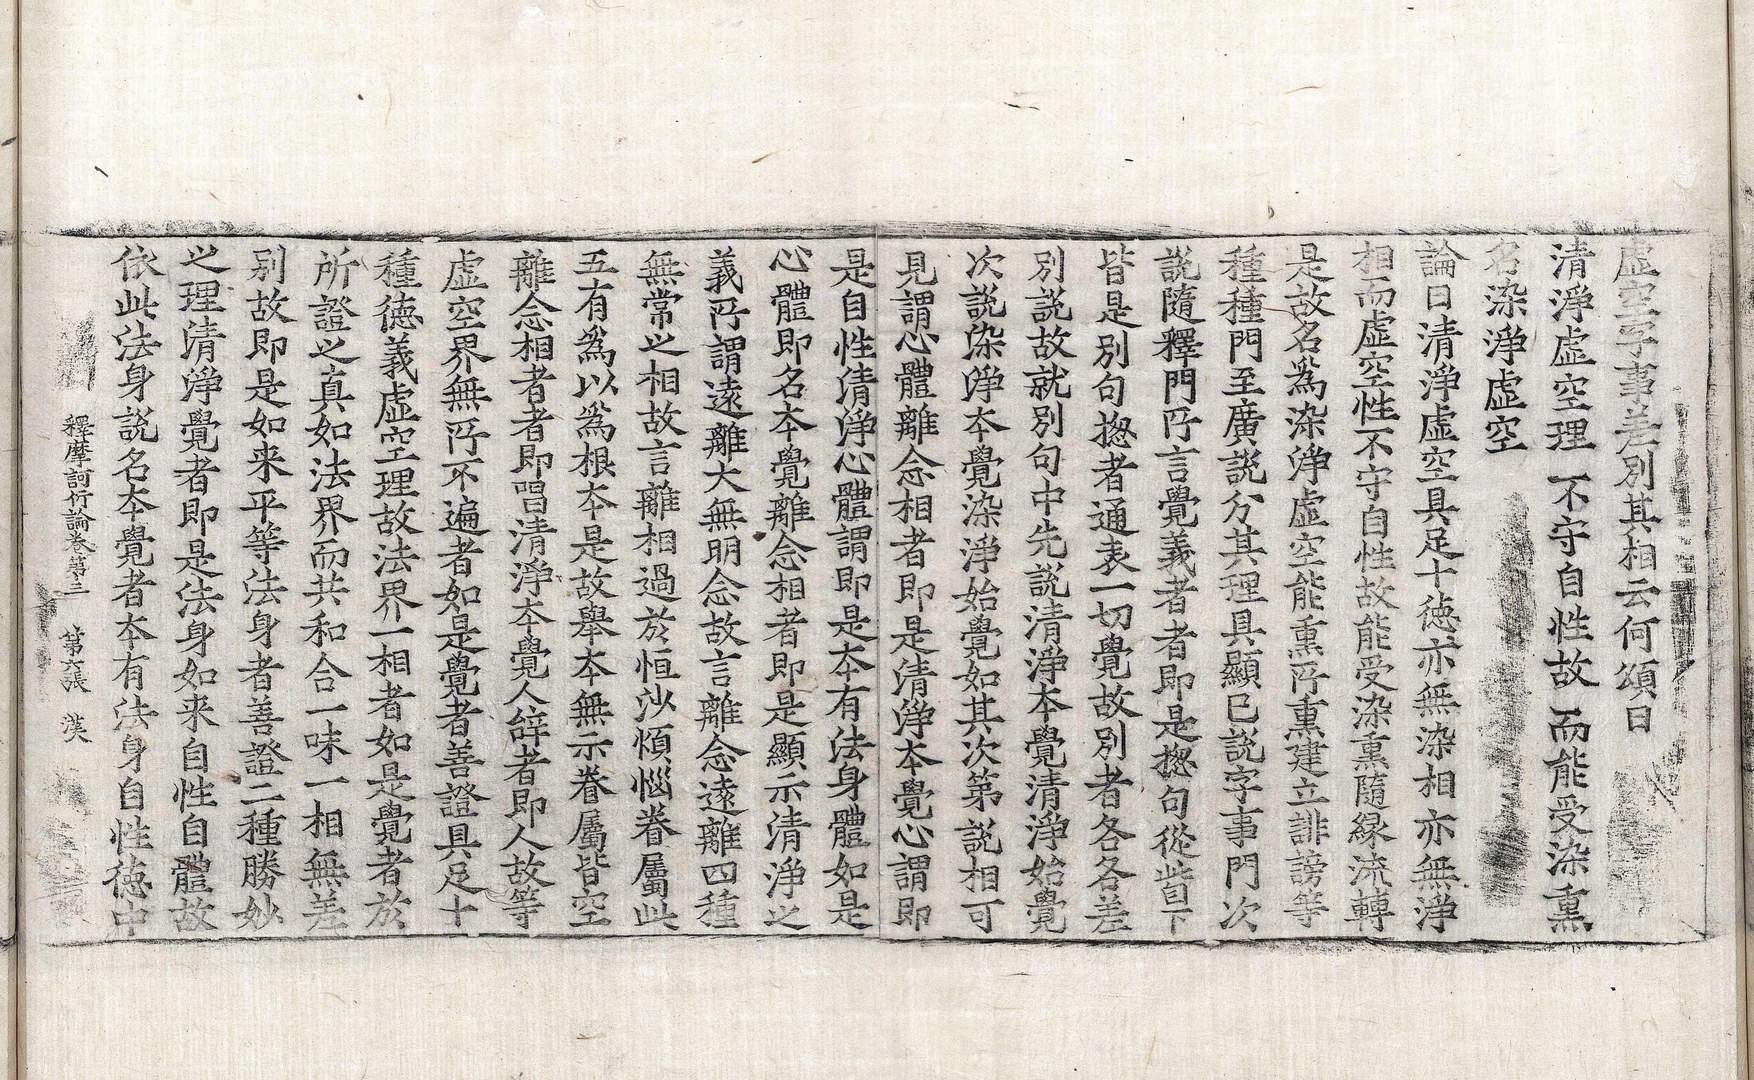 虛空字事差別其相云何頌曰
清淨虛空理 不守自性故 而能受染熏
名染淨虛空
論曰清淨虛空具足十德亦無染相亦無淨
相而虛空性不守自性故能受染熏隨縁流轉
是故名爲染淨虛空能熏所熏建立誹謗等
種種門至廣說分其理具顯已說字事門次
說隨釋門所言覺義者者即是揔句從此已下
皆是別句揔者通表一切覺故別者各各差
別說故就別句中先說清淨本覺清淨始覺
次說染淨本覺染淨始覺如其次第說相可
見謂心體離念相者即是清淨本覺心謂即
是自性清淨心體謂即是本有法身體如是
心體即名本覺離念相者即是顯示清淨之
義所謂遠離大無明念故言離念遠離四種
無常之相故言離相過於恒沙煩惱眷屬此
五有爲以爲根本是故舉本無示眷屬皆空
離念相者者即唱清淨本覺人辞者即人故等
虛空界無所不遍者如是覺者善證具足十
種德義虛空理故法界一相者如是覺者於
所證之真如法界而共和合一味一相無差
別故即是如来平等法身者善證二種勝妙
之理清淨覺者即是法身如来自性自體故
依此法身說名本覺者本有法身自性德中
釋摩訶衍論卷第三 第六張 漢